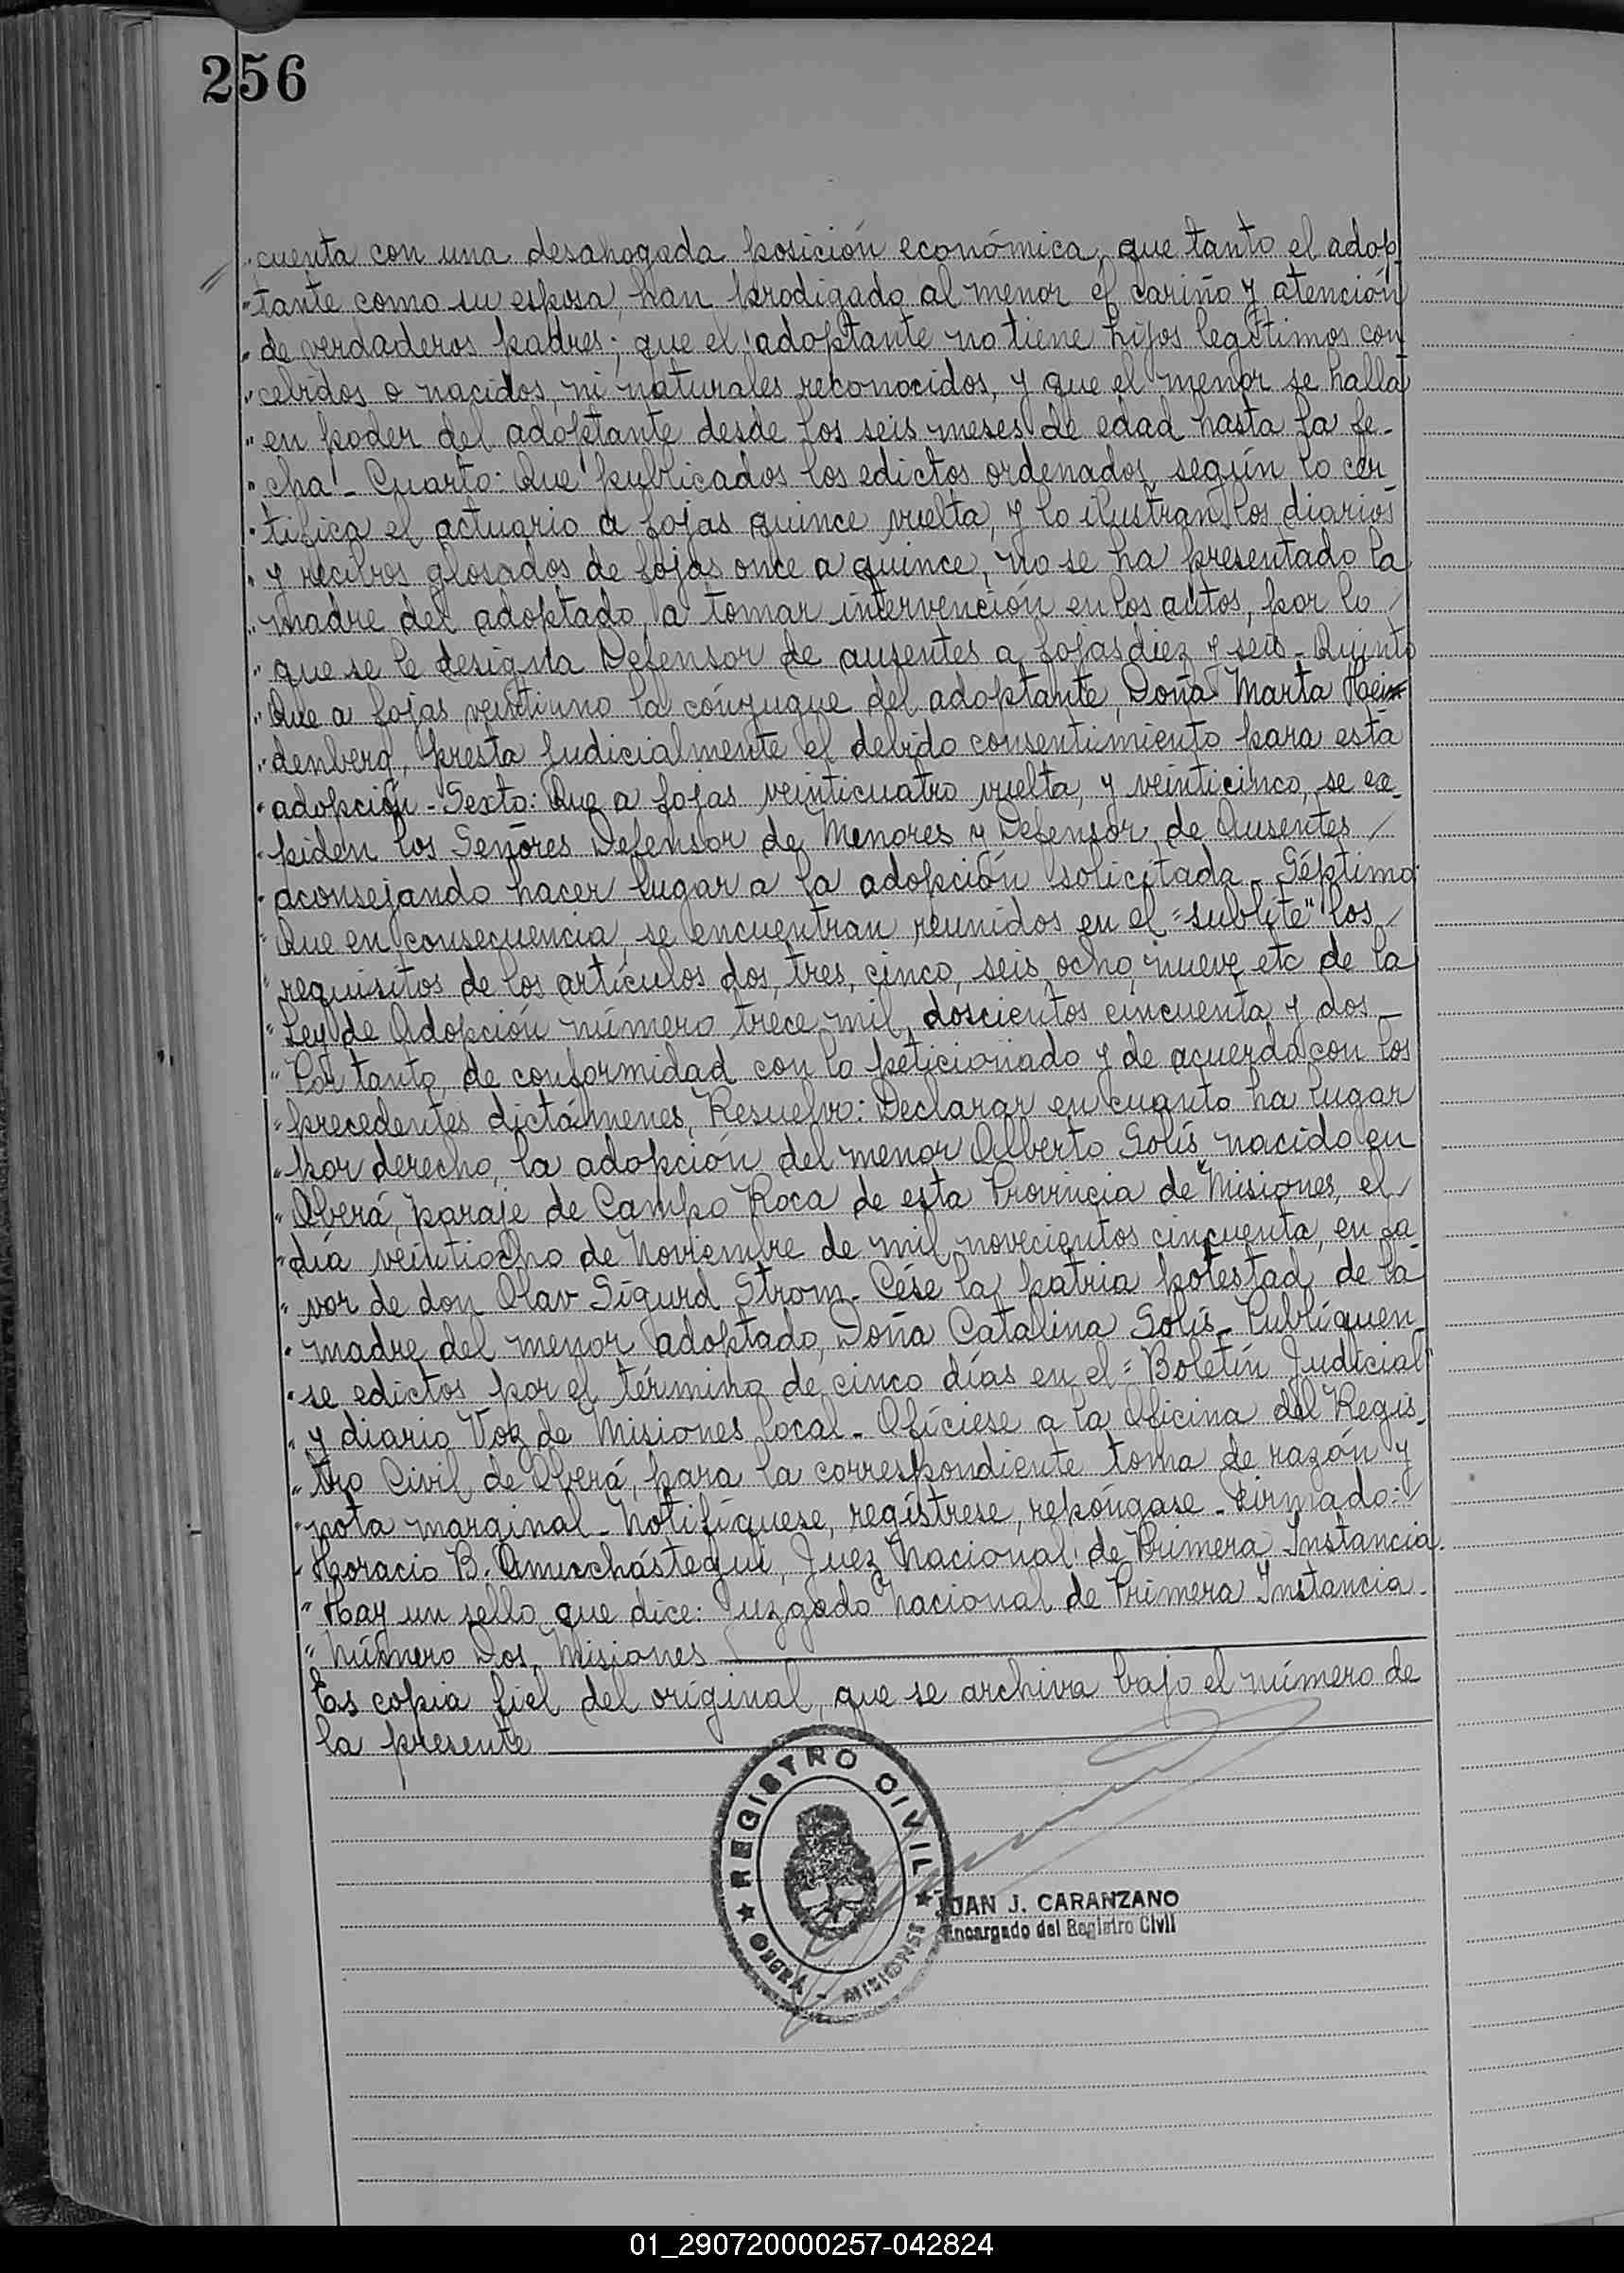 256
"cuenta con una desahogada posición económica, que tanto el adop
"tante como su esposa, han prodigado al menor el cariño y atención
"de verdaderos padres; que el adoptante no tiene hijos legítimos con
"cebidos o nacidos, ni naturales reconocidos, y que el menor se halla
"en poder del adoptante desde los seis meses de edad hasta la fe-
"cha - Cuarto: Que publicados los edictos ordenados, según lo cer
"tifica el actuario a fojas quince vuelta, y lo ilustran los diarios
"y recibos glosados de fojas once a quince, no se ha presentado la
"madre del adoptado, a tomar intervención en los autos, por lo /
"que se le designa Defensor de ausentes a fojas diez y seis - Quinto
"Que a fojas veintiuno la cónyugue del adoptante, Doña Marta Hei
"denberg, presta judicialmente el debido consentimiento para esta
"adopción - Sexto: Que a fojas veinticuatro vuelta, y veinticinco, se ex-
"piden los Señores Defensor de Menores y Defensor de Ausentes /
"aconsejando hacer lugar a la adopción solicitada - Séptimo:
"Que en consecuencia, se encuentran reunidos en el "sublite" los /
"requisitos de los artículos dos, tres, cinco, seis, ocho, nueve, etc de la
"Ley de Adopción número trece mil, doscientos cincuenta y dos -
"Por tanto, de conformidad con lo peticionado y de acuerdo con los
"precedentes dictámenes, Resuelvo: Declarar en cuanto ha lugar
"por derecho, la adopción del menor Alberto Solís nacido en
"Oberá, paraje de Campo Roca de esta Provincia de Misiones, el /
"día veintiocho de Noviembre de mil novecientos cincuenta, en fa-
"vor de don Olav Sigurd Strom - Cése la patria potestad de la
"madre del menor adoptado, Doña Catalina Solís - Publíquen-
"se edictos por el término de cinco días en el "Boletín Judicial"
"y diario Voz de Misiones local - Ofíciese a la Oficina del Regis-
"tro Civil de Oberá, para la correspondiente toma de razón y
"nota marginal - Notifíquese, regístrese, repóngase - Firmado: /
"Horacio B. Amuchástegui, Juez Nacional de Primera Instancia.
"Hay un sello que dice: Juzgado Nacional de Primera Instancia -
"Número Dos, Misiones
Es copia fiel del original, que se archiva bajo el número de
la presente
REGISTRO CIVIL
OBERÁ - MISIONES
JUAN J. CARANZANO
Encargado del Registro Civil
01_290720000257-042824